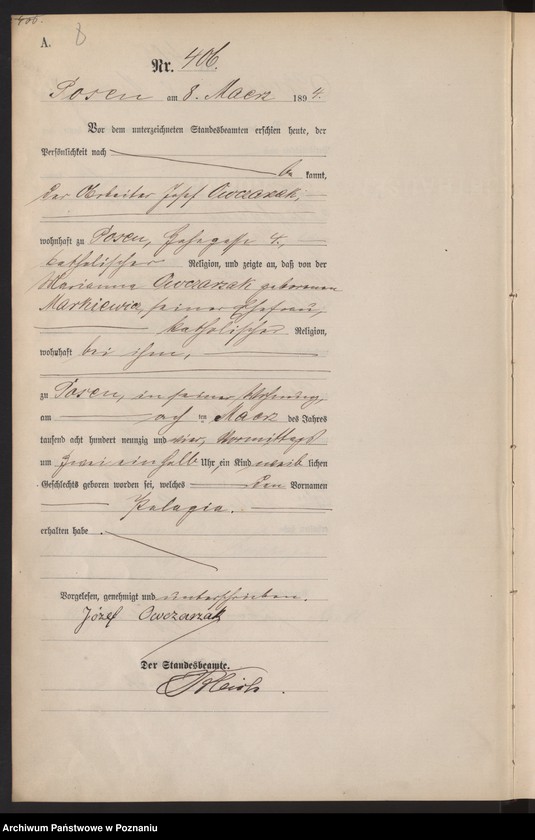 406.
A. 8
Nr. 406.
Posen am 8. Maerz 1894.
Vor dem unterzeichneten Standesbeamten erschien heute, der
Persönlichkeit nach
be kannt,
der Arbeiter Josef Owczarzak,
wohnhaft zu Posen, 4.,
katholischer Religion, und zeigte an, daß von der
Marianna Owczarzak geborenen
Markiewicz, seiner Ehefrau,
katholischer Religion,
wohnhaft bei ihm,
zu Posen, in seiner Wohnung,
am ten Maerz des Jahres
tausend acht hundert neunzig und vier, Vormittags
um zwei einhalb Uhr, ein Kind weib lichen
Geschlechts geboren worden sei, welches den Vornamen
Pelagia.
erhalten habe.
Vorgelesen, genehmigt und unterschrieben.
Józef Owczarzak
Der Standesbeamte.
Archiwum Państwowe w Poznaniu